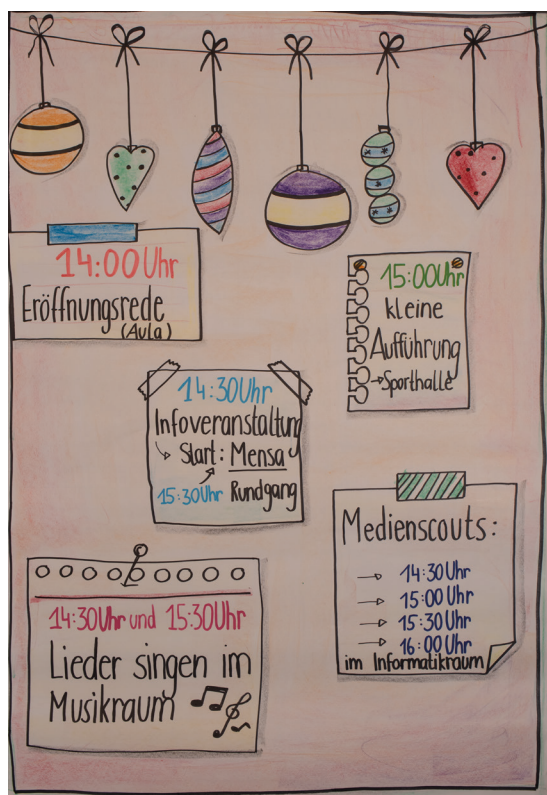 14:00 Uhr
Eröffnungsrede
(Aula)
15:00 Uhr
kleine
Aufführung
→ Sporthalle
14:30 Uhr
Infoveranstaltung
↪ Start: Mensa
15:30 Uhr Rundgang
Medienscouts:
→ 14:30 Uhr
→ 15:00 Uhr
→ 15:30 Uhr
→ 16:00 Uhr
im Informatikraum
14:30 Uhr und 15:30 Uhr
Lieder singen im
Musikraum